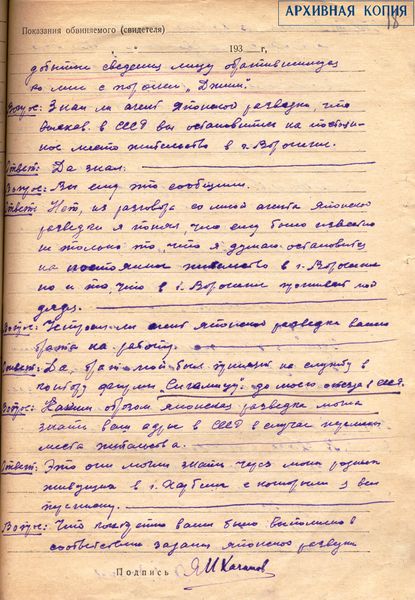 АРХИВНАЯ КОПИЯ
18
Показания обвиняемого (свидетеля)
" " 193 г,
добытые сведения лицу обратившемуся
ко мне с паролем „Джим".
Вопрос: Знал ли агент Японской разведки, что
в СССР вы остановитесь на постоян-
ное место жительство в г. Ворошилов.
Ответ: Да знал.
Вопрос: Вы ему это сообщили.
Ответ: Нет, из разговора со мной агента Японской
разведки я понял что ему было известно
не только то, что я думаю остановится
на постоянное жительство в г. Ворошилове
но и то, что в г. Ворошилове проживает мой
дядя.
Вопрос: Устроил ли агент Японской разведки вашего
брата на работу.
Ответ: Да, брат мой был принят на службу в
контору фирмы до моего отъезда в СССР.
Вопрос: Каким образом японская разведка могла
знать ваш адрес в СССР в случае перемены
места жительства.
Ответ: Это они могли знать через моих родных
живущих в г. Харбине с которыми я вел
переписку.
Вопрос: Что вами было выполнено в
соответствии задания японской разведки
Подпись